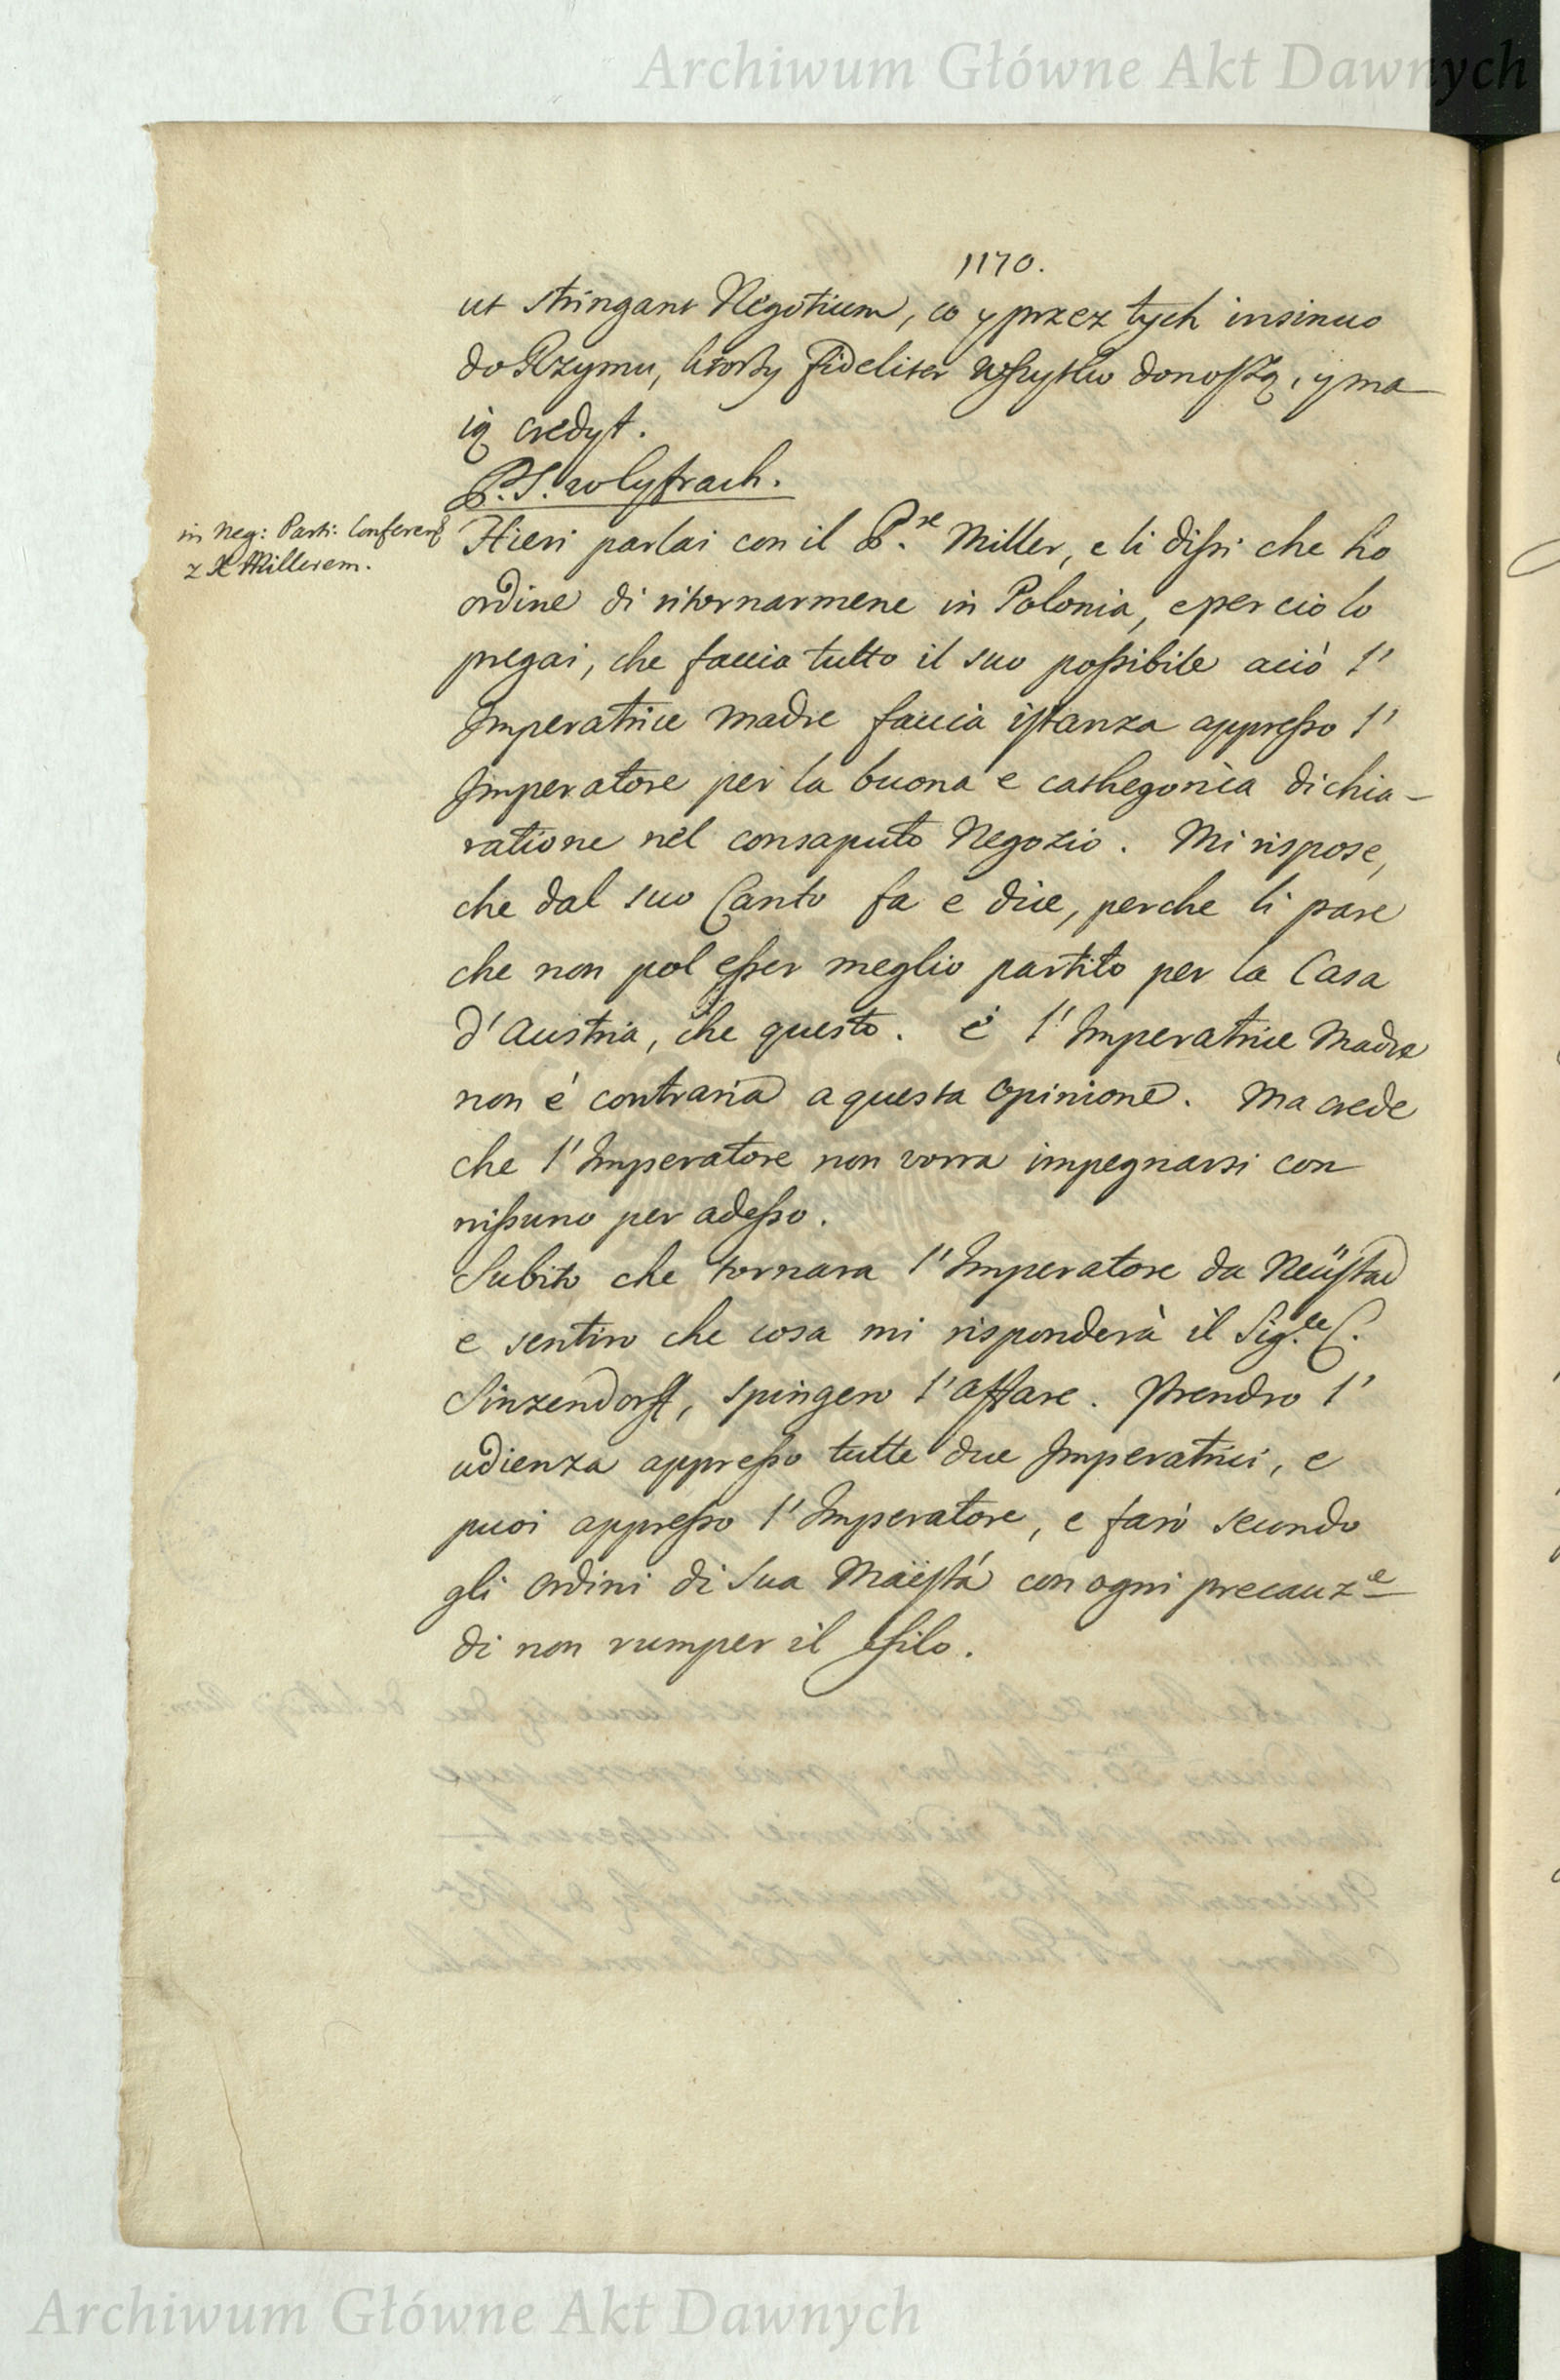 Archiwum Główne Akt Dawnych
1170.
ut stringant Negotium, co y przez tych insinuo
do Rzymu, ktorzy fideliter wszystko donoszą, y ma
ią credyt.
P.S. w Cyfrach.
in Neg: Parti: Conferen
z X Millerem.
Hieri parlai con il P.re Miller, e li dissi che ho
ordine di ritornarmene in Polonia, e per cio lo
pregai, che faccia tutto il suo possibile acciò l'
Imperatrice Madre faccia istanza appresso l'
Imperatore per la buona e cathegorica dichia-
ratione nel consaputo Negozio. Mi rispose,
che dal suo Canto fa e dice, perche li pare
che non pol esser meglio partito per la Casa
d'Austria, che questo. é l'Imperatrice Madre
non é contraria a questa opinione. Ma crede
che l'Imperatore non vorra impegnarsi con
nissuno per adesso.
Subito che tornara l'Imperatore da Neüstad
e sentiro che cosa mi risponderà il Sig.le C.
Sinzendorff, spingero l'affare. Prendro l'
udienza appresso tutte due Imperatrici, e
puoi appresso l'Imperatore, e farò secundo
gli ordini di Sua Maiestá con ogni precauz.e
di non rumper il filo.
Archiwum Główne Akt Dawnych